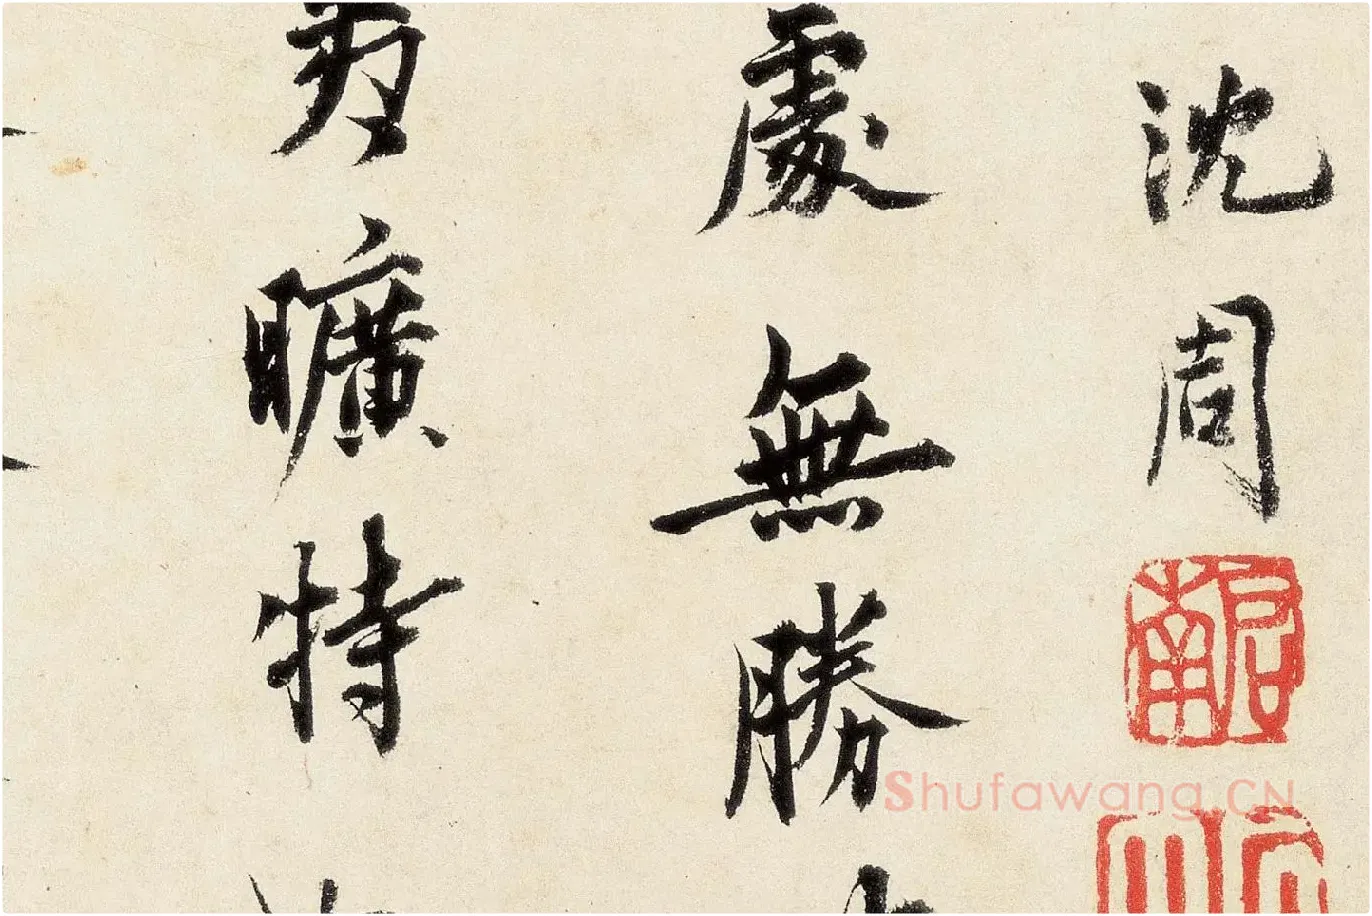 沈周
啟南
處無勝
曠特
Shufawang.CN